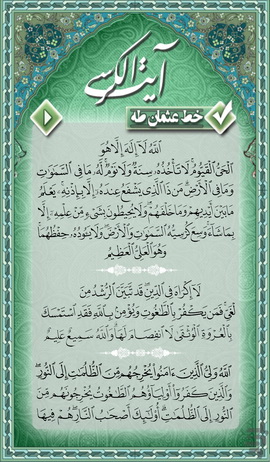 آیت الکرسی
خط عثمان طه
اللَّهُ لَا إِلَٰهَ إِلَّا هُوَ
الْحَيُّ الْقَيُّومُ لَا تَأْخُذُهُ سِنَةٌ وَلَا نَوْمٌ لَّهُ مَا فِي السَّمَٰوَٰتِ
وَمَا فِي الْأَرْضِ مَن ذَا الَّذِي يَشْفَعُ عِندَهُ إِلَّا بِإِذْنِهِ يَعْلَمُ
مَا بَيْنَ أَيْدِيهِمْ وَمَا خَلْفَهُمْ وَلَا يُحِيطُونَ بِشَيْءٍ مِّنْ عِلْمِهِ إِلَّا
بِمَا شَاءَ وَسِعَ كُرْسِيُّهُ السَّمَٰوَٰتِ وَالْأَرْضَ وَلَا يَئُودُهُ حِفْظُهُمَا
وَهُوَ الْعَلِيُّ الْعَظِيمُ
لَا إِكْرَاهَ فِي الدِّينِ قَد تَّبَيَّنَ الرُّشْدُ مِنَ
الْغَيِّ فَمَن يَكْفُرْ بِالطَّٰغُوتِ وَيُؤْمِن بِاللَّهِ فَقَدِ اسْتَمْسَكَ
بِالْعُرْوَةِ الْوُثْقَىٰ لَا انفِصَامَ لَهَا وَاللَّهُ سَمِيعٌ عَلِيمٌ
اللَّهُ وَلِيُّ الَّذِينَ ءَامَنُوا يُخْرِجُهُم مِّنَ الظُّلُمَٰتِ إِلَى النُّورِ
وَالَّذِينَ كَفَرُوا أَوْلِيَاؤُهُمُ الطَّٰغُوتُ يُخْرِجُونَهُم مِّنَ
النُّورِ إِلَى الظُّلُمَٰتِ أُولَٰئِكَ أَصْحَٰبُ النَّارِ هُمْ فِيهَا